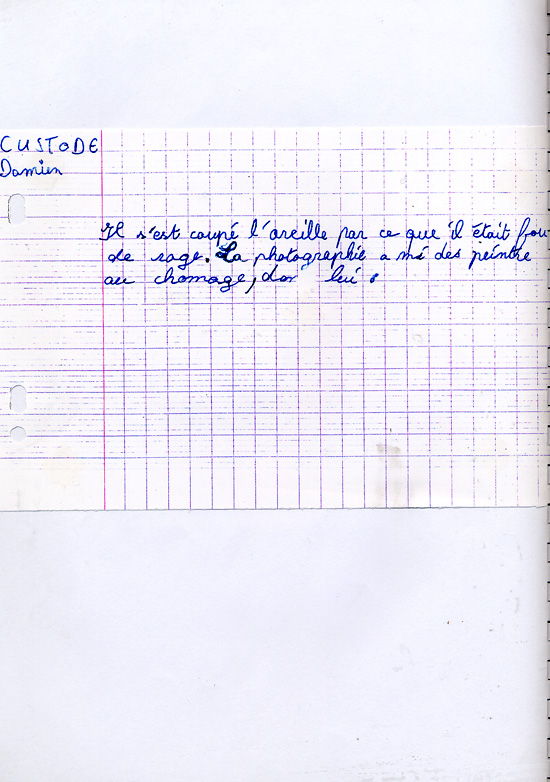 CUSTODE
Damien
Il s'est coupé l'oreille par ce que il était fou
de rage. La photographie a mi des peintre
au chomage, don lui.